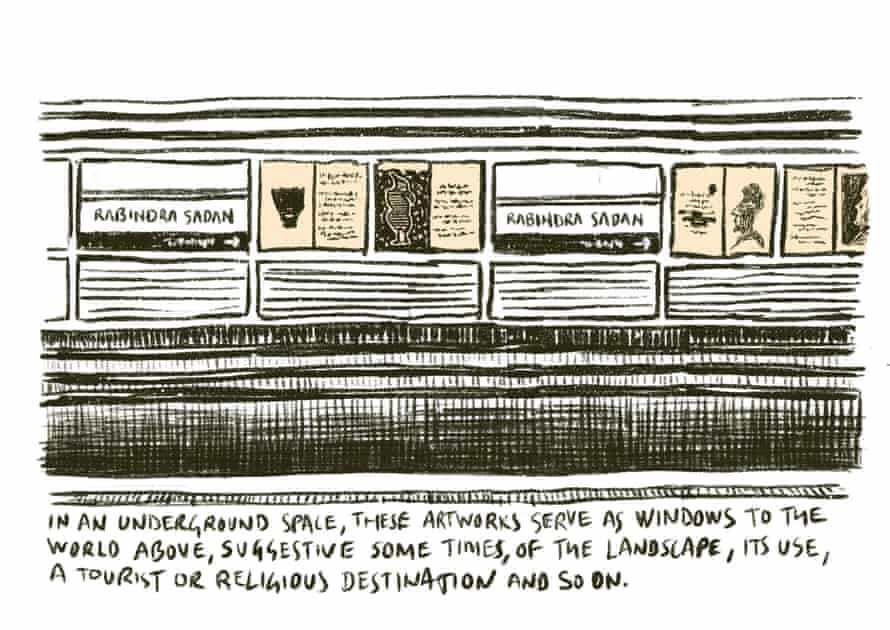 RABINDRA SADAN
RABINDRA SADAN
IN AN UNDERGROUND SPACE, THESE ARTWORKS SERVE AS WINDOWS TO THE
WORLD ABOVE, SUGGESTIVE SOME TIMES, OF THE LANDSCAPE, ITS USE,
A TOURIST OR RELIGIOUS DESTINATION AND SO ON.